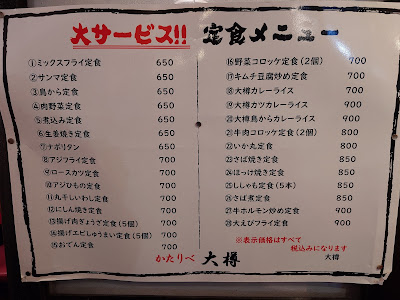 大サービス!! 定食メニュー
①ミックスフライ定食 650
②サンマ定食 650
③鳥から定食 650
④肉野菜定食 650
⑤煮込み定食 650
⑥生姜焼き定食 650
⑦ナポリタン 650
⑧アジフライ定食 700
⑨ロースカツ定食 700
⑩アジひもの定食 700
⑪丸干しいわし定食 700
⑫にしん焼き定食 700
⑬揚げ肉ぎょうざ定食(5個) 700
⑭揚げエビしゅうまい定食(5個) 700
⑮おでん定食 700
⑯野菜コロッケ定食(2個) 700
⑰キムチ豆腐炒め定食 700
⑱大樽カレーライス 700
⑲大樽カツカレーライス 900
⑳大樽鳥からカレーライス 900
㉑牛肉コロッケ定食(2個) 800
㉒いか丸定食 800
㉓さば焼き定食 850
㉔ほっけ焼き定食 850
㉕ししゃも定食(5本) 850
㉖さば煮定食 850
㉗牛ホルモン炒め定食 900
㉘大えびフライ定食 900
※表示価格はすべて
税込みになります
かたりべ 大樽
大樽